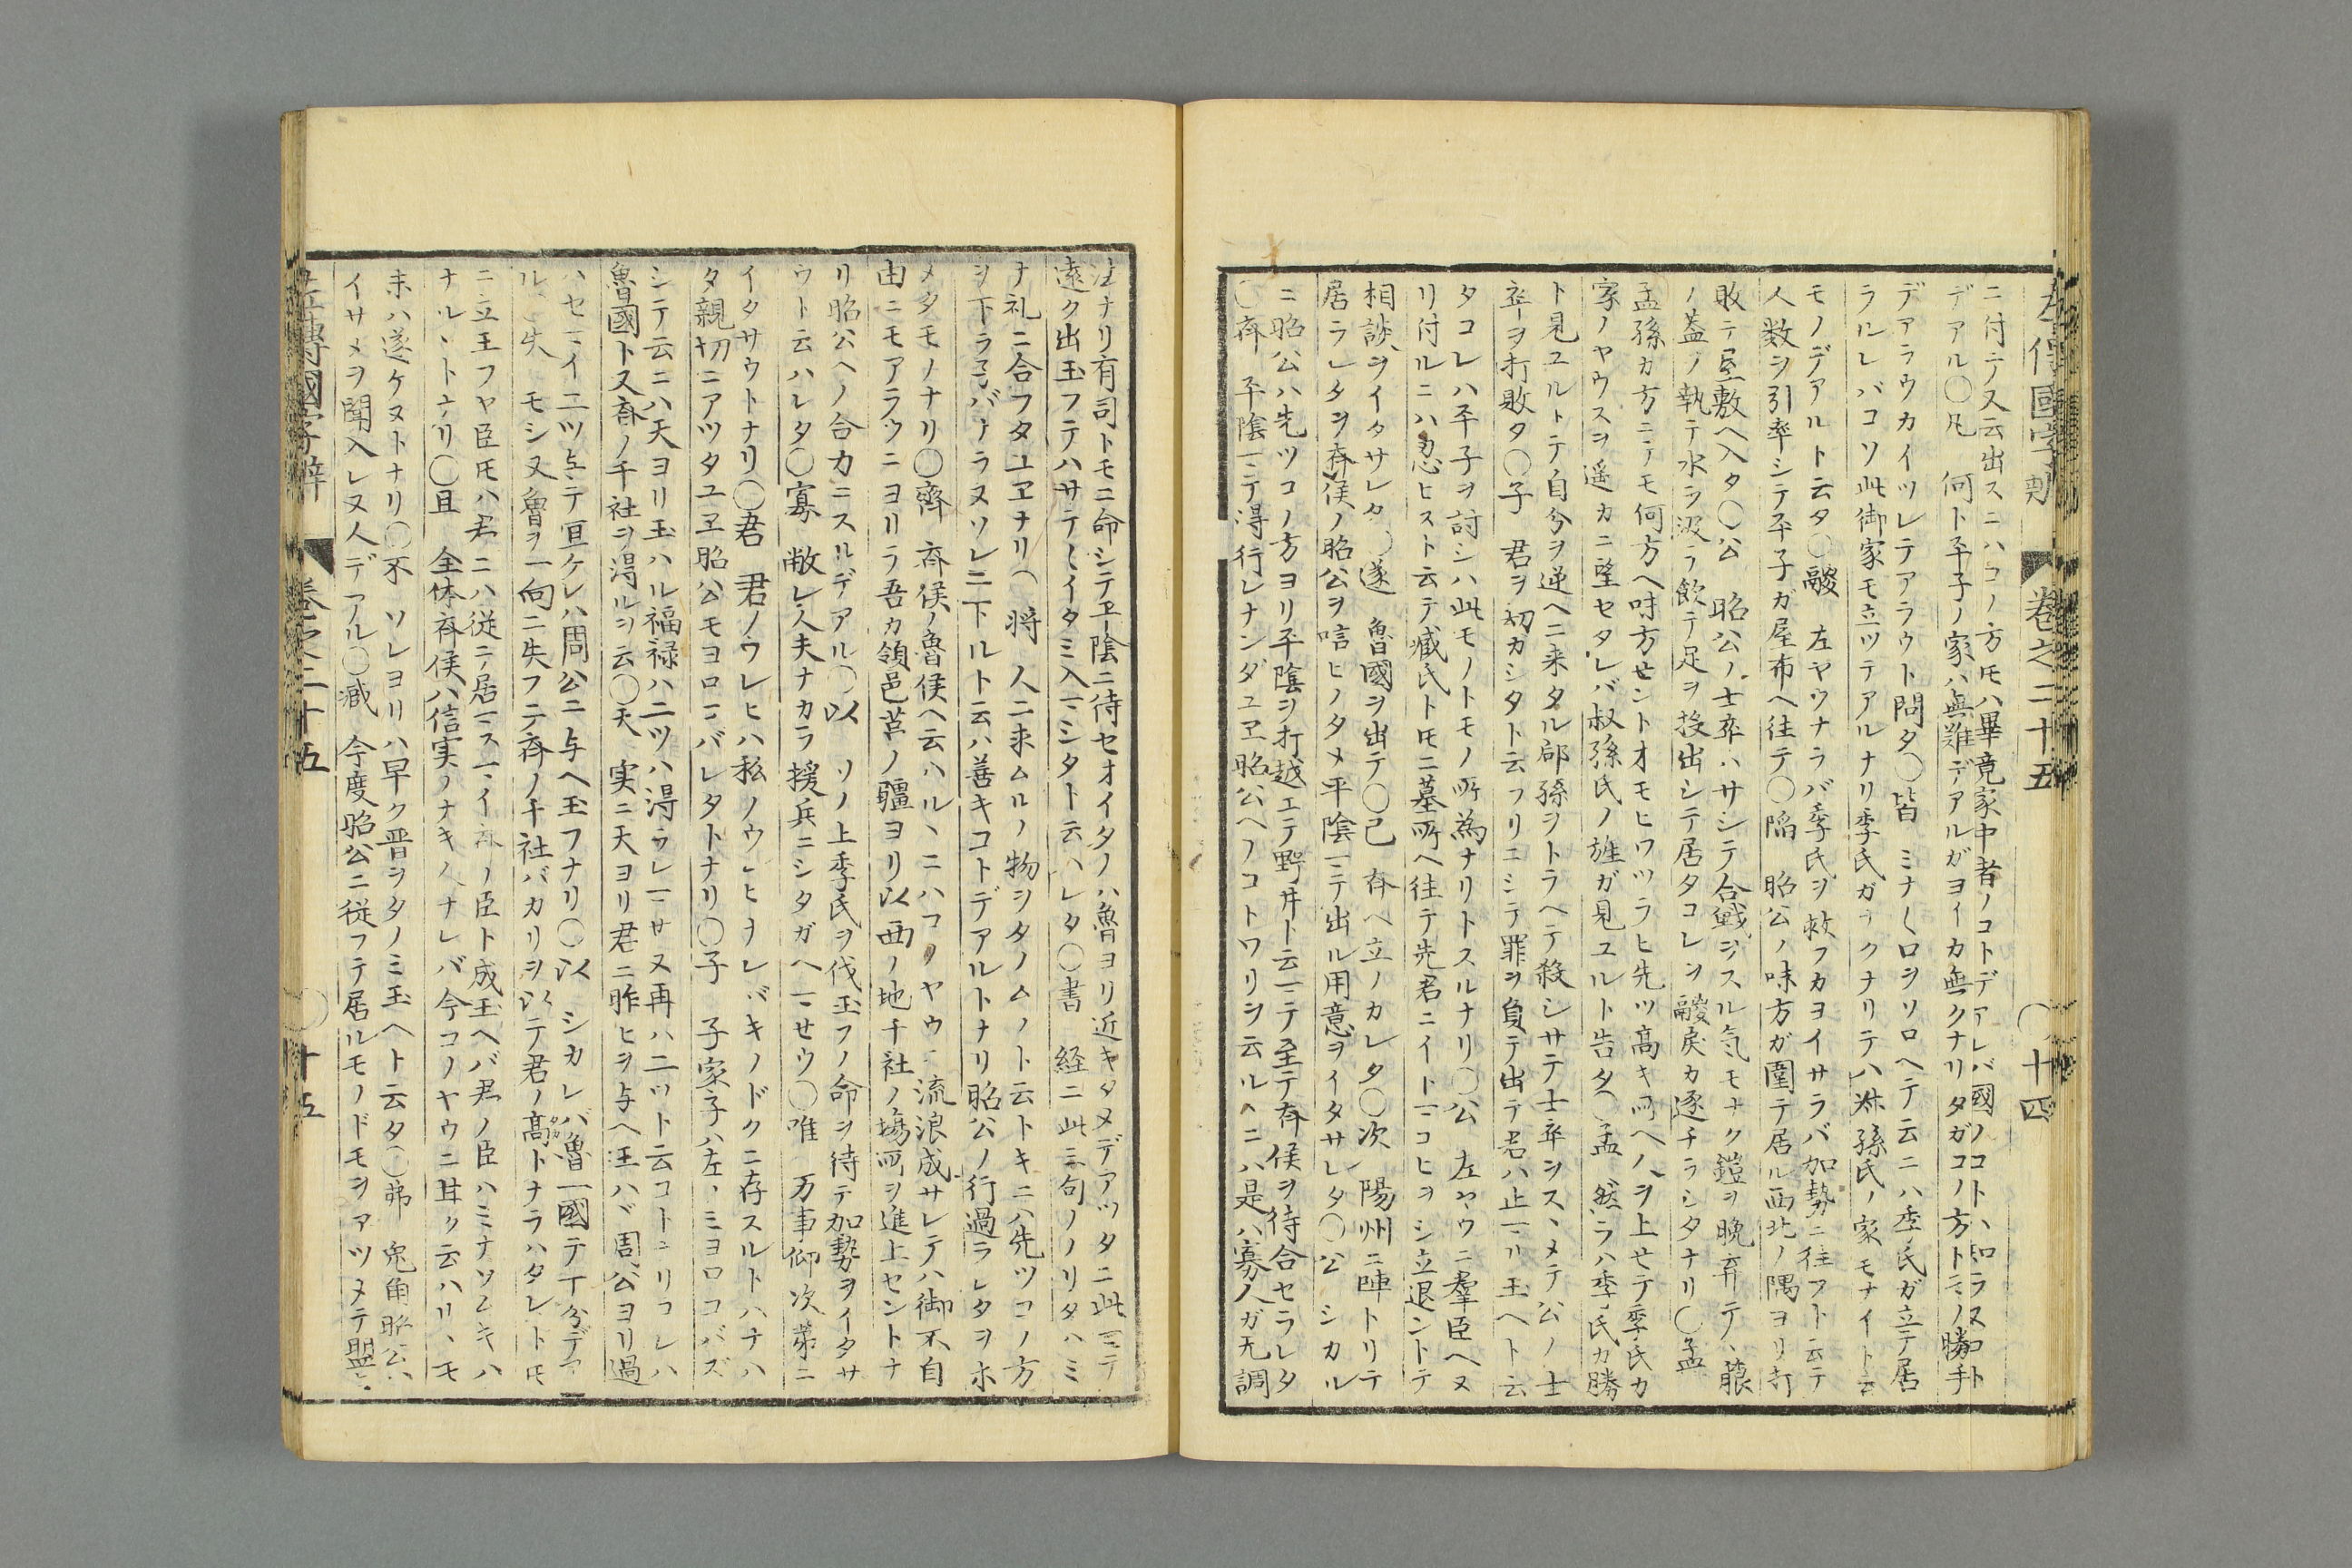 左傳國字辨 卷之二十五 十四
ニ付テ又云出スニハコノ方㐧ハ畢竟家中者ノコトデアレバ國ノコトハ知ラヌ知ト
デアル〇凡 何ト平子ノ家ハ無難デアルガヨイカ無クナリタガコノ方トモノ勝手
デアラウカイツレテアラウト問タ〇皆 ミナ〱口ヲソロヘテ云ニハ季氏ガ立テ居
ラルレバコソ此御家モ立ツテアルナリ季氏ガナクナリテハ叔孫氏ノ家モナイト云
モノデアルト云タ〇鬷 左ヤウナラバ季氏ヲ救フカヨイサラバ加勢ニ往フト云テ
人数ヲ引率シテ平子ガ屋布ヘ往テ〇陥 昭公ノ味方ガ圍テ居ル西北ノ隅ヨリ打
敗テ屋敷ヘ入タ〇公 昭公ノ士卒ハサシテ合戦ヲスル気モナク鎧ヲ脱弃テ丶箙
ノ蓋ノ執テ水ヲ汲ラ飲テ足ヲ投出シテ居タコレヲ鬷戻カ逐チラシタナリ〇孟
孟孫カ方ニテモ何方ヘ吋方セントオモヒワツラヒ先ツ高キ所ヘ人ヲ上セテ季氏カ
家ノヤウスヲ遥カニ望セタレバ叔孫氏ノ旌ガ見ユルト告タ〇孟 然ラハ季氏カ勝
ト見ユルトテ自分ヲ逆ヘニ来タル郈孫ヲトラヘテ殺シサテ士卒ヲスヽメテ公ノ士
卒ヲ打敗タ〇子 君ヲ刧カシタト云フリニシテ罪ヲ負テ出テ君ハ止マリ玉ヘト云
タコレハ平子ヲ討シハ此モノトモノ所為ナリトスルナリ〇公 左ヤウニ羣臣ヘヌ
リ付ルニハ忍ヒスト云テ臧氏トモニ墓所ヘ往テ先君ニイトマコヒヲシ立退ントテ
相談ヲイタサレタ〇遂 魯國ヲ出テ〇己 齊ヘ立ノカレタ〇次 陽州ニ陣トリテ
居ラレタヲ齊侯ノ昭公ヲ唁ヒノタメ平陰マテ出ル用意ヲイタサレタ〇公 シカル
ニ昭公ハ先ツコノ方ヨリ平陰ヲ打越エテ野井ト云マテ至テ齊侯ヲ待合セラレタ
〇齊 平陰マテ得行レナンダユヱ昭公ヘノコトワリヲ云ルヽニハ是ハ寡人ガ无調
法ナリ有司トモニ命シテ平陰ニ待セオイタノハ魯ヨリ近キタメデアツタニ此マテ
遠ク出玉フテハサテ〱イタミ入マシタト云ハレタ〇書 経ニ此三句ノノリタハミ
ナ礼ニ合フタユヱナリ〇将 人ニ求ムルノ物ヲタノムノト云トキニハ先ツコノ方
ヲ下ラ子バナラヌソレニ下ルト云ハ善キコトデアルトナリ昭公ノ行過ラレタヲホ
メタモノナリ〇齊 齊侯ノ魯侯ヘ云ハルヽニハコノヤウニ流浪成サレテハ御不自
由ニモアラウニヨリラ吾カ領邑莒ノ疆ヨリ以西ノ地千社ノ塲所ヲ進上セントナ
リ昭公ヘノ合力ニスルデアル〇以 ソノ上季氏ヲ伐玉フノ命ヲ待テ加勢ヲイタサ
ウト云ハレタ〇寡 敝レ人夫ナカラ援兵ニシタガヘマせウ〇唯 万事仰次第ニ
イタサウトナリ〇君 君ノウレヒハ私ノウレヒナレバキノドクニ存スルトハナハ
タ親切ニアツタユヱ昭公モヨロコバレタトナリ〇子 子家子ハ左ノミヨロコバズ
シテ云ニハ天ヨリ玉ハル福禄ハ二ツハ得ラレマサヌ再ハ二ツト云コトニリコレハ
魯國ト又齊ノ千社ヲ得ルヲ云〇天 実ニ天ヨリ君ニ胙ヒヲ与ヘ玉ハヾ周公ヨリ過
ハセマイ二ツ与テ亘ケレハ周公ニ与ヘ玉フナリ〇以 シカレバ魯一國テ丁分デア
ル〇失 モシ又魯ヲ一向ニ失フテ齊ノ千社バカリヲ以テ君ノ高トナラハタレト㐧
ニ立玉フヤ臣㐧ハ君ニハ従テ居マスマイ齊ノ臣ト成玉ヘバ君ノ臣ハミナソムキハ
ナルヽトナリ〇且 全体齊侯ハ信実ノナキ人ナレバ今コノヤウニ甘ク云ハリヽモ
末ハ遂ケヌトナリ〇不 ソレヨリハ早ク晋ヲタノミ玉ヘト云タ〇弗 兎角昭公ハ
イサメヲ聞入レヌ人デアル〇臧 今度昭公ニ従フテ居ルモノドモヲアツメテ盟
左傳國字辨 卷之二十五 十五